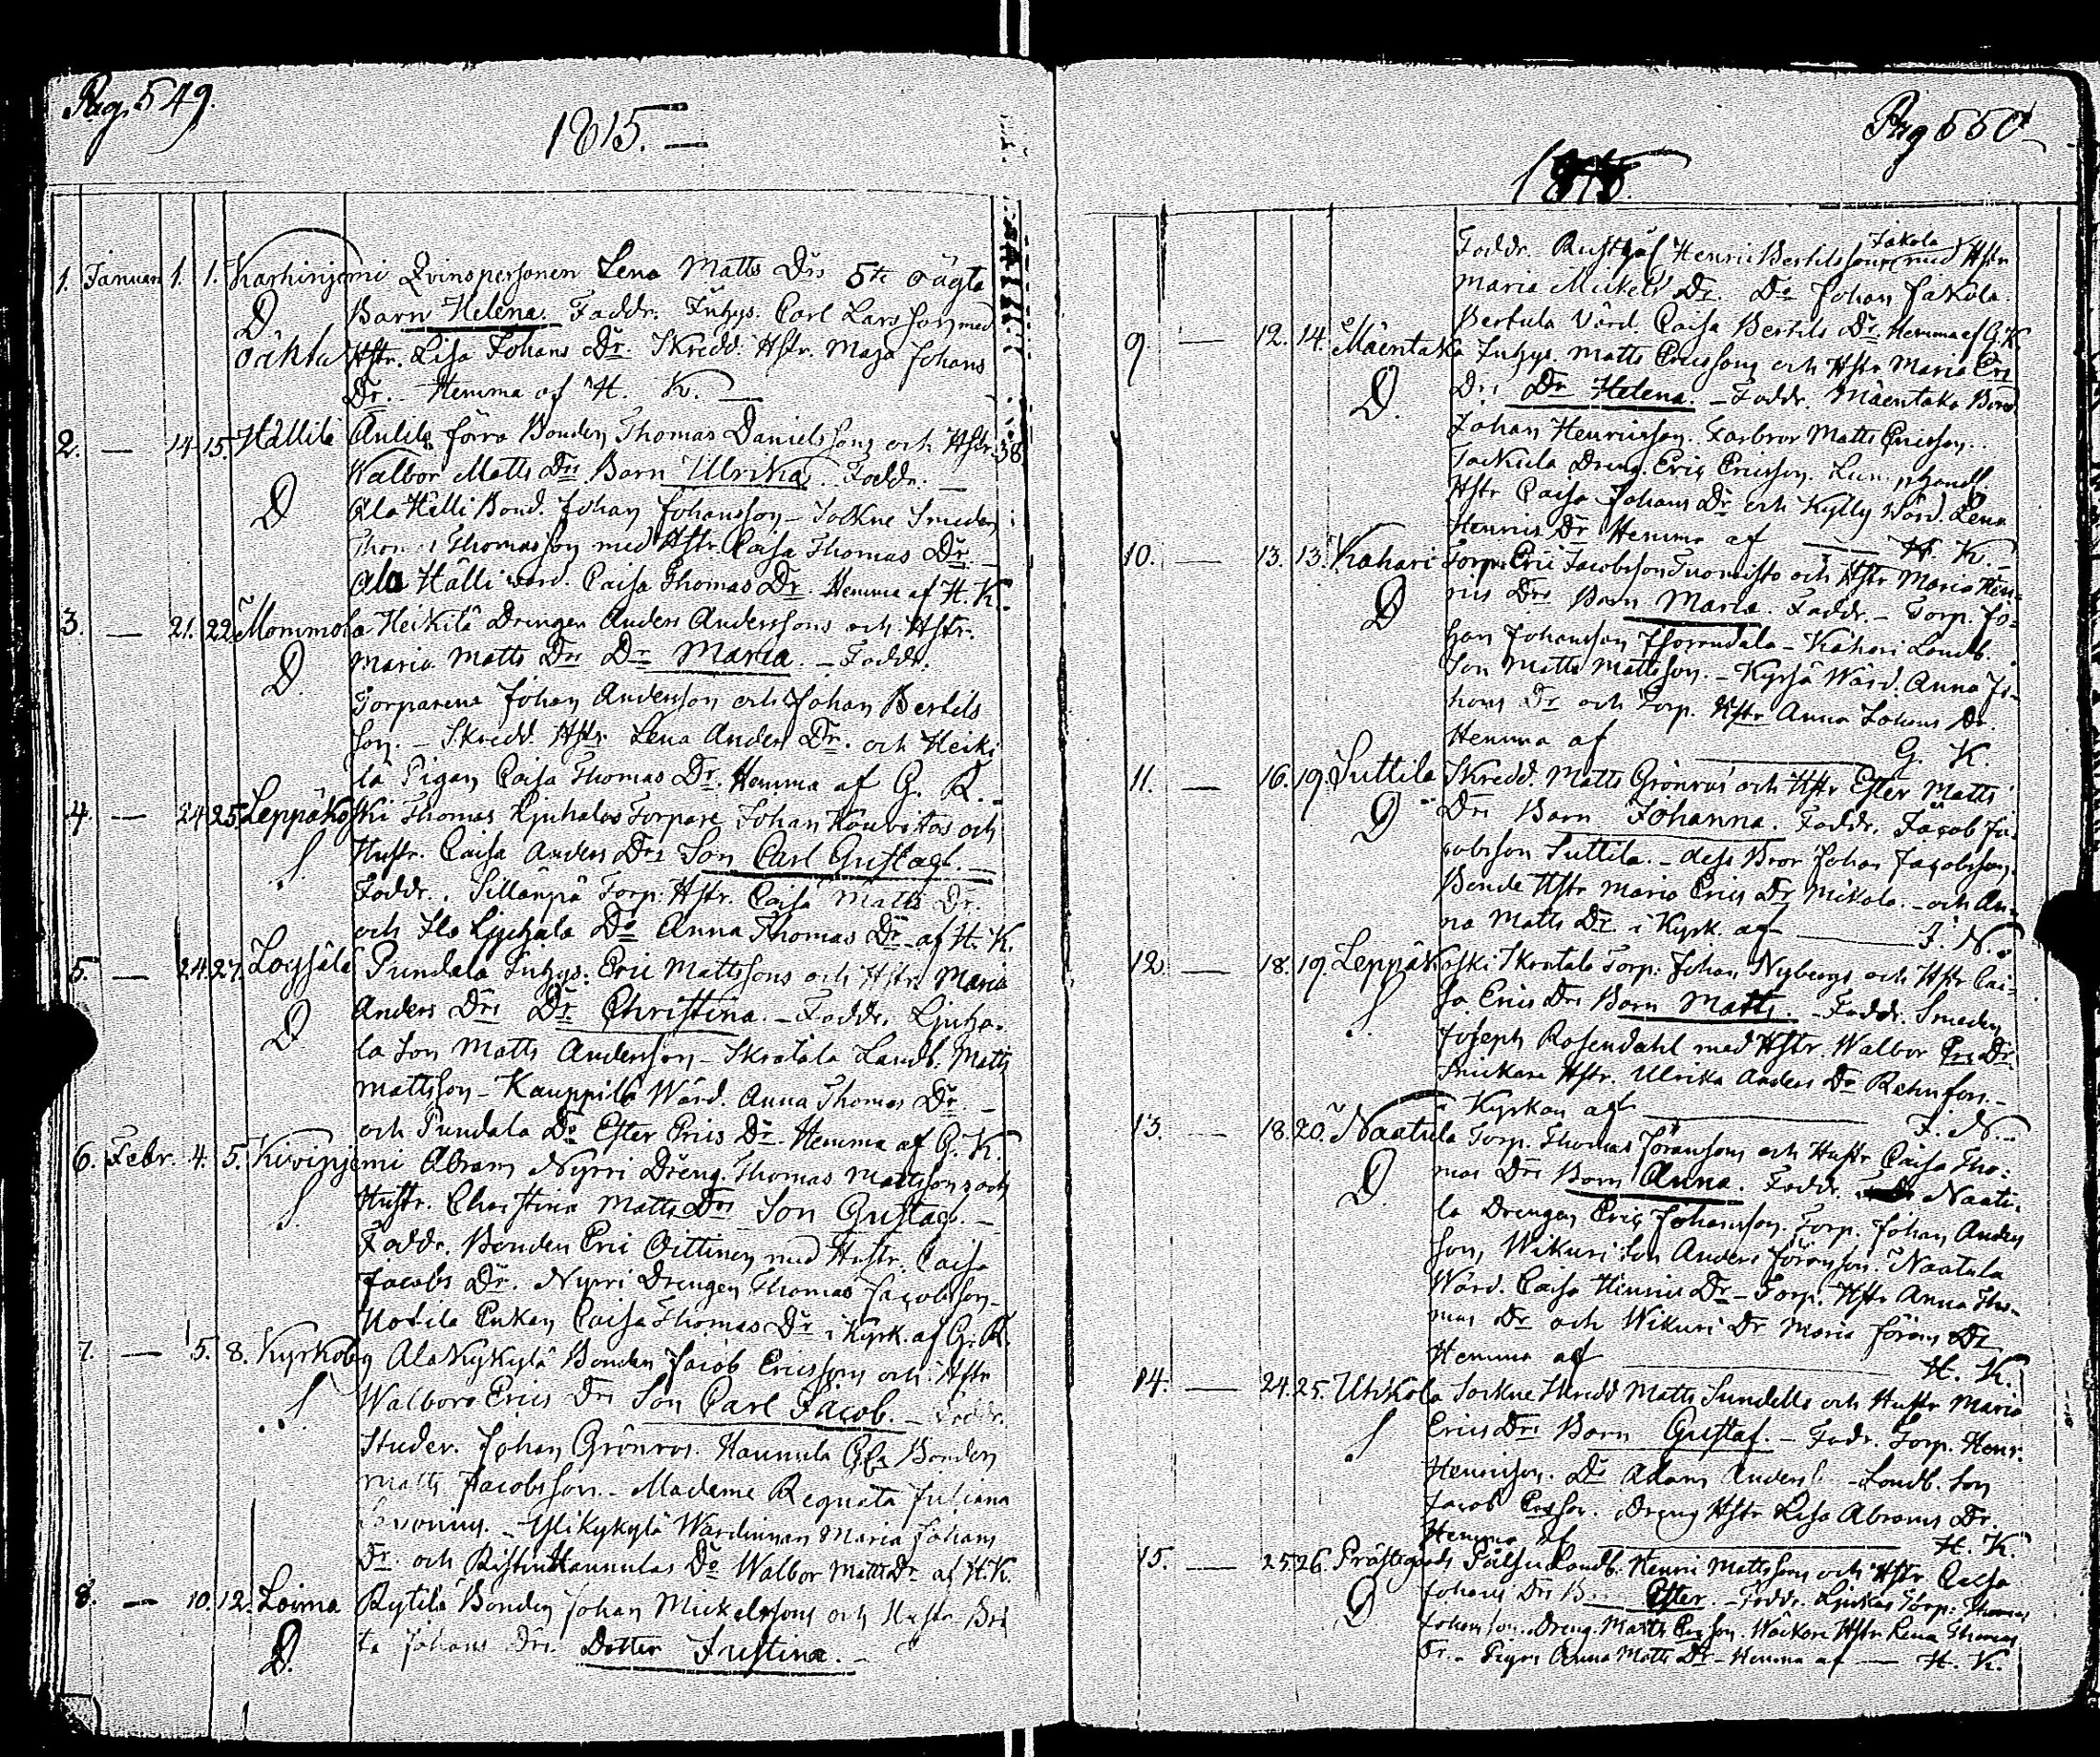 Pag. 549.
1815. —
1. Januari 1. 1. Karhinjemi Qvinspersonen Lena Matts Drs 5te oägta
D Barn Helena. Faddr. Inhys. Carl Larsson med
oäkta Hstr. Lisa Johans Dr. Skredd. Hstr. Maja Johans
Dr. — Hemma af H. K. —
2. — 14. 15. Hällilä Anlila förra Bonden Thomas Danielssons och Hstr. 38
Walbor Matts Drs Barn Ulrika. Faddr. —
D Ala Hälli Bond. Johan Johansson — Sockne Smeden
Thomas Thomasson med Hstr. Caisa Thomas Dr. —
Ala Hälli Wärd. Caisa Thomas Dr. Hemma af H. K.
3. — 21. 22. Mommola Heikilä Drengen Anders Anderssons och Hstr.
D Maria Matts Drs Dr Maria. — Faddr.
Torparena Johan Andersson och Johan Bertils
son. — Skredd. Hstr. Lena Anders Dr. och Heiki
lä Pigan Caisa Thomas Dr. Hemma af G. K. —
4. — 24. 25. Leppäkoski Thomas Ljuhalas Torpare Johan Kouvos och
S Hustr. Caisa Anders Drs Son Carl Gustaf. —
Faddr. Sillänpä Torp. Hstr. Caisa Matts Dr.
och Ljuhala Do Anna Thomas Dr. af H. K.
5. — 24. 27. Logsälä Pundala Inhys. Eric Mattssons och Hstr. Maria
D Anders Drs Dr Christina. — Faddr. Ljuha-
la Son Matts Andersson — Skratala Landb. Matts
Mattsson — Kauppila Wärd. Anna Thomas Dr. —
och Pundala Do Ester Erics Dr. Hemma af G. K.
6. Febr. 4. 5. Kivinjemi Abram Nyrri Dreng. Thomas Mattssons och
S Hustr. Christina Matts Drs Son Gustaf. —
Faddr. Bonden Eric Oittinen med Hustr. Caisa
Jacobs Dr. Nyrri Drengen Thomas Jacobsson —
Enkan Caisa Thomas Dr. i Kyrk. af G. K.
7. — 5. 8. Kyrkoby Ala Kykylä Bonden Jacob Ericssons och Hstr
S Walbors Erics Drs Son Carl Jacob. — Faddr.
Studer. Johan Grönros. Hannula Bonden
Matts Jacobsson. — Madame Regnata Juliana
— Yli Kykylä Wärdinnan Maria Johans
Dr. och Hannulas Do Walbor Matts Dr. af H. K.
8. — 10. 12. Loima Rytilä Bonden Johan Mickelssons och Hustr. Bri
D. ta Johans Drs Dotter Justina. —
Pag 550
1815.
Faddr. Rusthål. Henric Bertilsson Jakola med Hstr
Maria Mickels Dr. Do Johan Jakola.
Bertula Värd. Caisa Bertils Dr. Hemma af G. K.
9. — 12. 14. Mäentaka Inhys. Matts Ericssons och Hstr Maria Eri
D. Drs Dr Helena. — Faddr. Mäentaka Bond.
Johan Henricsson. Farbror Matts Ericsson.
Jackula Dreng. Eric Ericsson.
Hstr Caisa Johans Dr. och Kylly Wärd. Lena
Henrics Dr. Hemma af — H. K. —
10. — 13. 13. Kahari Torp. Eric Jacobsson Tuomisto och Hstr Maria Hen-
D rics Drs Barn Maria. Faddr. — Torp. Jo-
han Johansson — Kahari Landb.
Son Matts Mattsson. — Kyrsä Wärd. Anna Jo-
hans Dr och Torp. Hstr Anna Johans Dr.
Hemma af — G. K.
11. — 16. 19. Suttila Skredd. Matts Grönros och Hstr Ester Matts
D Drs Barn Johanna. Faddr. Jacob Ja-
cobsson Suttila. — dess Bror Johan Jacobsson.
Bonde Hstr Maria Erics Dr Mikola. — och An-
na Matts Dr. i Kyrk. af — J. N. —
12. — 18. 19. Leppäkoski Skratala Torp. Johan Nybergs och Hstr Cai-
S sa Erics Drs Barn Matts. — Faddr. Smeden
Joseph Rosendahl med Hstr. Walbor Erics Dr.
Snickare Hstr. Ulrika Anders Dr Rehnfors. —
i Kyrkan af — J. N. —
13. — 18. 20. Naatula Torp. Thomas Göranssons och Hustr Caisa Tho-
D mas Drs Barn Anna. Faddr. Naatu-
la Drengen Eric Johansson. Torp. Johan Anders
son, Wikuri Son Anders Göransson. Naatula
Wärd. Caisa Henrics Dr — Torp. Hstr Anna Tho-
mas Dr och Wikuri Dr Maria Görans Dr
Hemma af — H. K.
14. — 24. 25. Uhkola Sockne Skredd Matts Sundells och Hustr Maria
S Erics Drs Barn Gustaf. — Fadr. Torp. Henr.
Henricsson. Do Adam Anders. — Landb. Son
Jacob Ersson. Dreng Hstr Lisa Abrams Dr.
Hemma af — H. K.
15. — 25. 26. Prästegårds Landb. Henric Mattssons och Hstr Caisa
D Johans Drs B. Ester. — Faddr. Torp. Thomas
Johansson. Dreng. Matts Ersson. Hstr Lena Thomas
Dr. — Pigan Anna Matts Dr — Hemma af — H. K.